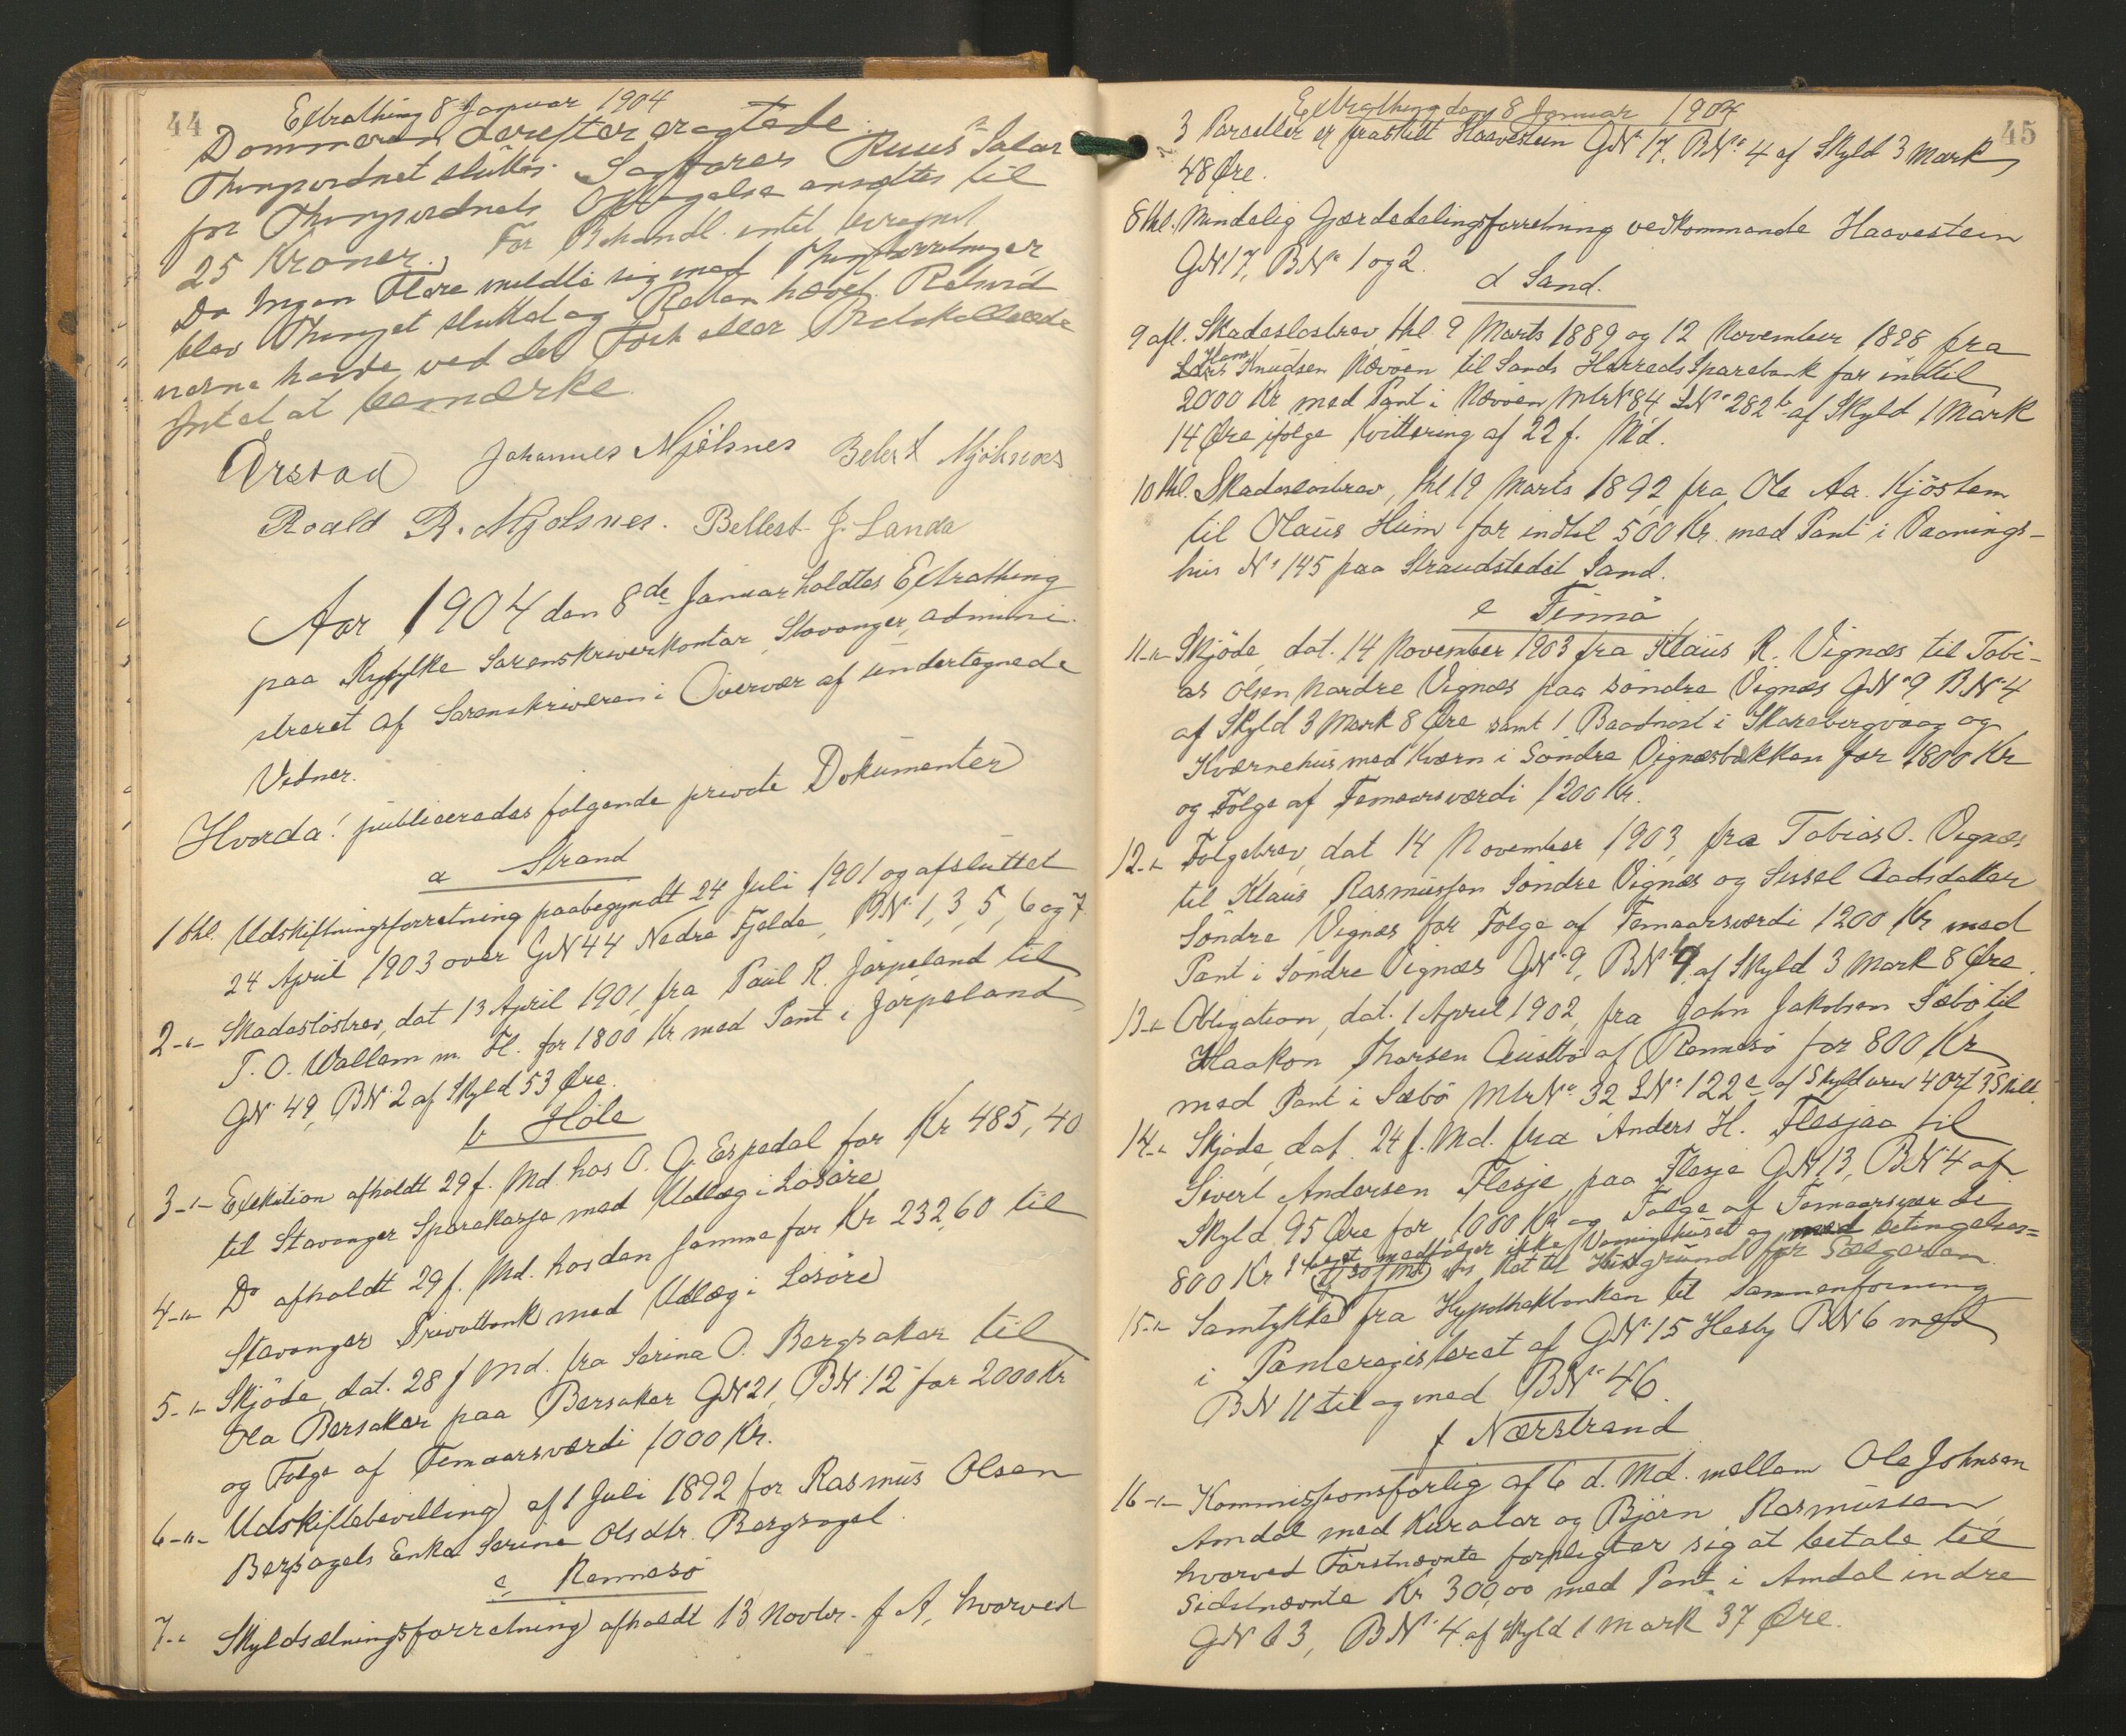 44
Extrathing 8 Januar 1904
Dommeren derefter aragtede.
Thingsvidnet sluttes. Sagfører Ruus's Salær
for Thingsvidnets Optagelse ansattes til
25 Kroner. For Behandl. intet beregnet
Da Ingen Flere meldte sig med Thingforretninger
blev Thinget sluttet og Retten hævet. Retsvid
nerne havde ved det Forh
Intet at bemærke
Årstad Johannes Mjölsnes Mjölsnes
Roald R. Mjølsnes. J. Landa
Aar 1904 den 8de Januar holdtes Extrathing
paa Ryfylke Sorenskriverkontor, Stavanger, admini-
streret af Sorenskriveren i Overvær af undertegnede
Vidner.
Hvorda! publiceredes følgende private Dokumenter
a Strand
1 thl. Udskiftningsforretning paabegyndt 24 Juli 1901 og afsluttet
24 April 1903 over GN 44 Nedre Fjelde, BN. 1, 3, 5, 6 og 7
2-"- Skadesløsbrev, dat 13 April 1901, fra Paul R. Jørpeland til
T. O. Wallem m. Fl. for 1800 Kr med Pant i Jørpeland
GN. 49, BN. 2 af Skyld 53 Øre.
b Høle
3-"- Exekution afholdt 29 f. Md. hos O. G. Espedal for Kr 485,40
til Stavanger Sparekasse med Udlæg i Løsøre
4-"- Do afholdt 29 f. Md. hos den samme for Kr 232,60 til
Stavanger Privatbank med Udlæg i Løsøre
5-"- Skjøde, dat. 28 f Md. fra Serina O. Bergsaker til
Ola Bersaker paa Bersaker GN 21, BN. 12 for 2000 Kr
og Følge af Femaarsværdi 1000 Kr.
6-"- Udskiftebevilling af 1 Juli 1892 for Rasmus Olsen
Bersagels Enke Serine Olsdtr. Bergsagel.
c, Rennesø
7-" Skyldsætningsforretning afholdt 13 Novbr. f A, hvorved
Extrathing den 8 Januar 1904
45
3 Parceller er fraskilt Haavestein GN. 17, BN. 4 af Skyld 3 Mark
48 Øre.
8 thl. Mindelig Gjærdedelingsforretning vedkommende Haavestein
GN 17, BN. 1 og 2.
d Sand.
9 afl. Skadesløsbrev, thl. 9 Marts 1889 og 12 November 1898 fra
Knudsen Nævøen til Sands Herreds Sparebank for indtil
2000 Kr med Pant i Nævøen Mtr N 84 LN. 282 b af Skyld 1 Mark
14 Øre ifølge Kvittering af 22 f. Md.
10 thl. Skadesløsbrev, thl 19 Marts 1892, fra Ole Aa. Kjöstem
til Olaus Heim for indtil 500 Kr. med Pant i Vaanings-
hus N. 145 paa Strandstedet Sand.
e Finnö
11-"- Skjöde, dat. 14 November 1903 fra Klaus R. Vignæs til Tobi-
as Olsen Nordre Vignæs paa søndre Vignæs GN. 9 BN. 4
af Skyld 3 Mark 8 Øre samt 1 Baadnöst i Skarebergvaag og
Kværnehus med Kværn i Søndre Vignæsbækken for 1800 Kr
og Følge af Femaarsværdi 1200 Kr.
12-"- Følgebrev, dat 14 November 1903, fra Tobias O. Vignæs
til Klaus Rasmussen Søndre Vignæs og Sissel Aadsdatter
Söndre Vignæs for Følge af Femaarsværdi 1200 Kr med
Pant i Søndre Vignæs GN. 9, BN. 4, af Skyld 3 Mark 8 Øre.
13-"- Obligation, dat. 1 April 1902, fra John Jakobsen Sæbö til
Haakon Thorsen Austbö af Rennesø for 800 Kr
med Pant i Sæbö Mtr N. 32 LN. 122 c af Skyld urev 4 Ort 3 Skill.
14-"- Skjøde, dat. 24 f. Md. fra Anders H. Flesjaa til
Sivert Andersen Flesje, paa Flesje GN. 13, BN 4 af
Skyld 95 Øre for 1000 Kr og Følge af Femaarsværdi
800 Kr medfølger ikke Vaaningshuset og med betingelses-
Ret til Husgrund for Sælgeren
15-"- Samtykke fra Hypothekbanken til Sammenføining
i Panteregisteret af GN. 15 Hesby BN 6 med
BN 11 til og med BN. 46.
f Nærstrand
16-"- Kommissionsforlig af 6 d. Md. mellem Ole Johnsen
Amdal med Kurator og Bjørn Rasmussen
hvorved Førstnævnte forpligter sig at betale til
Sidstnævnte Kr 300,00 med Pant i Amdal indre
GN 63, BN. 4 af Skyld 1 Mark 37 Øre.